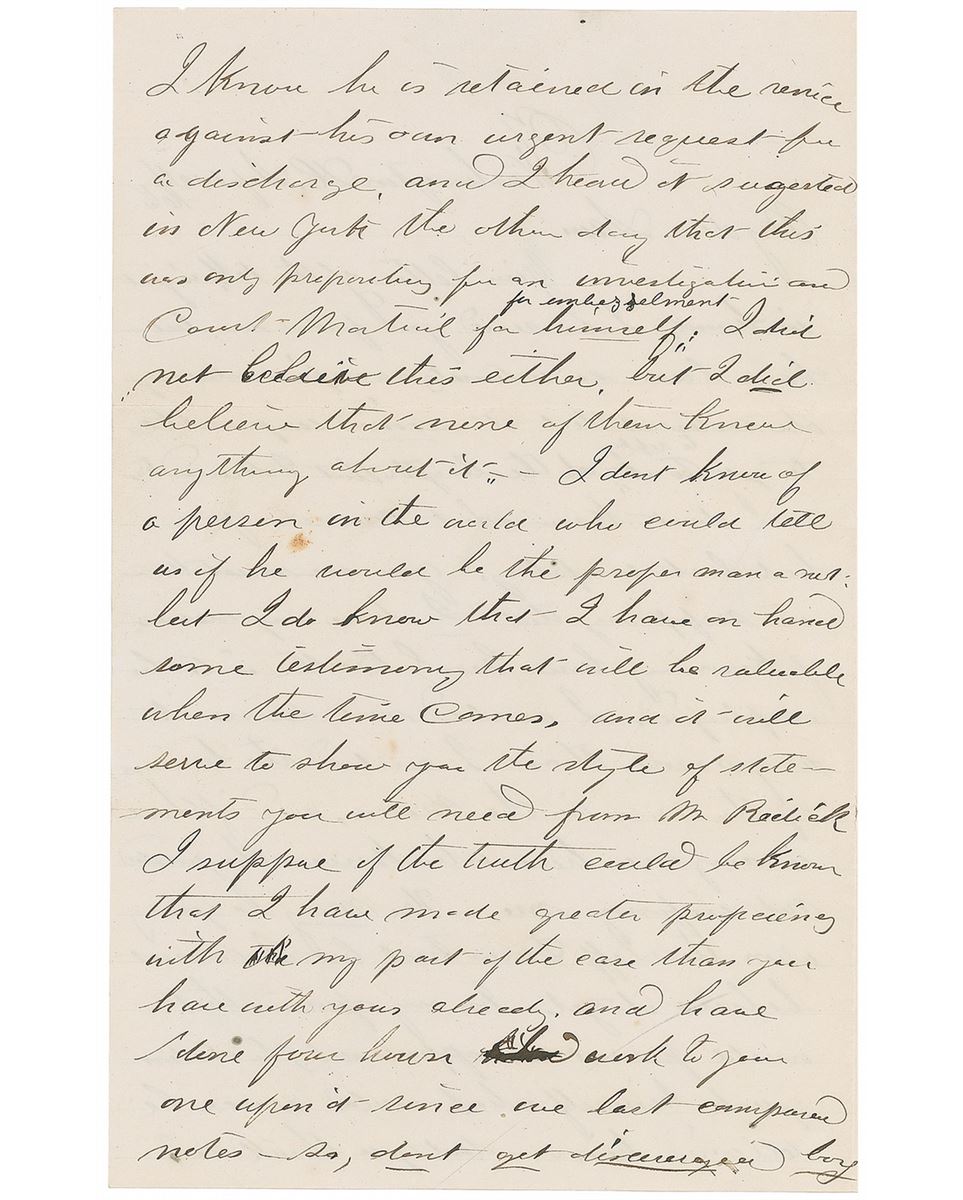 I know he is retained in the service
against his own urgent request for
a discharge, and I heard it sugested
in New York the other day that this
was only preparitory for an investigation and
for embezzelment
Court-Martial for himself; I did
not believe this either, but I did
believe that none of them knew
anything about it" - I dont know of
a person in the world who could tell
us if he would be the proper man or not:
but I do know that I have on hand
some testimony that will be valuable
when the time comes, and it will
serve to show you the style of state-
ments you will need from Mr
I suppose if the truth could be known
that I have made greater proficiency
with my part of the case than you
have with yours already, and have
done four hours work to your
one upon it since we last compared
notes - so, dont get discouraged boy